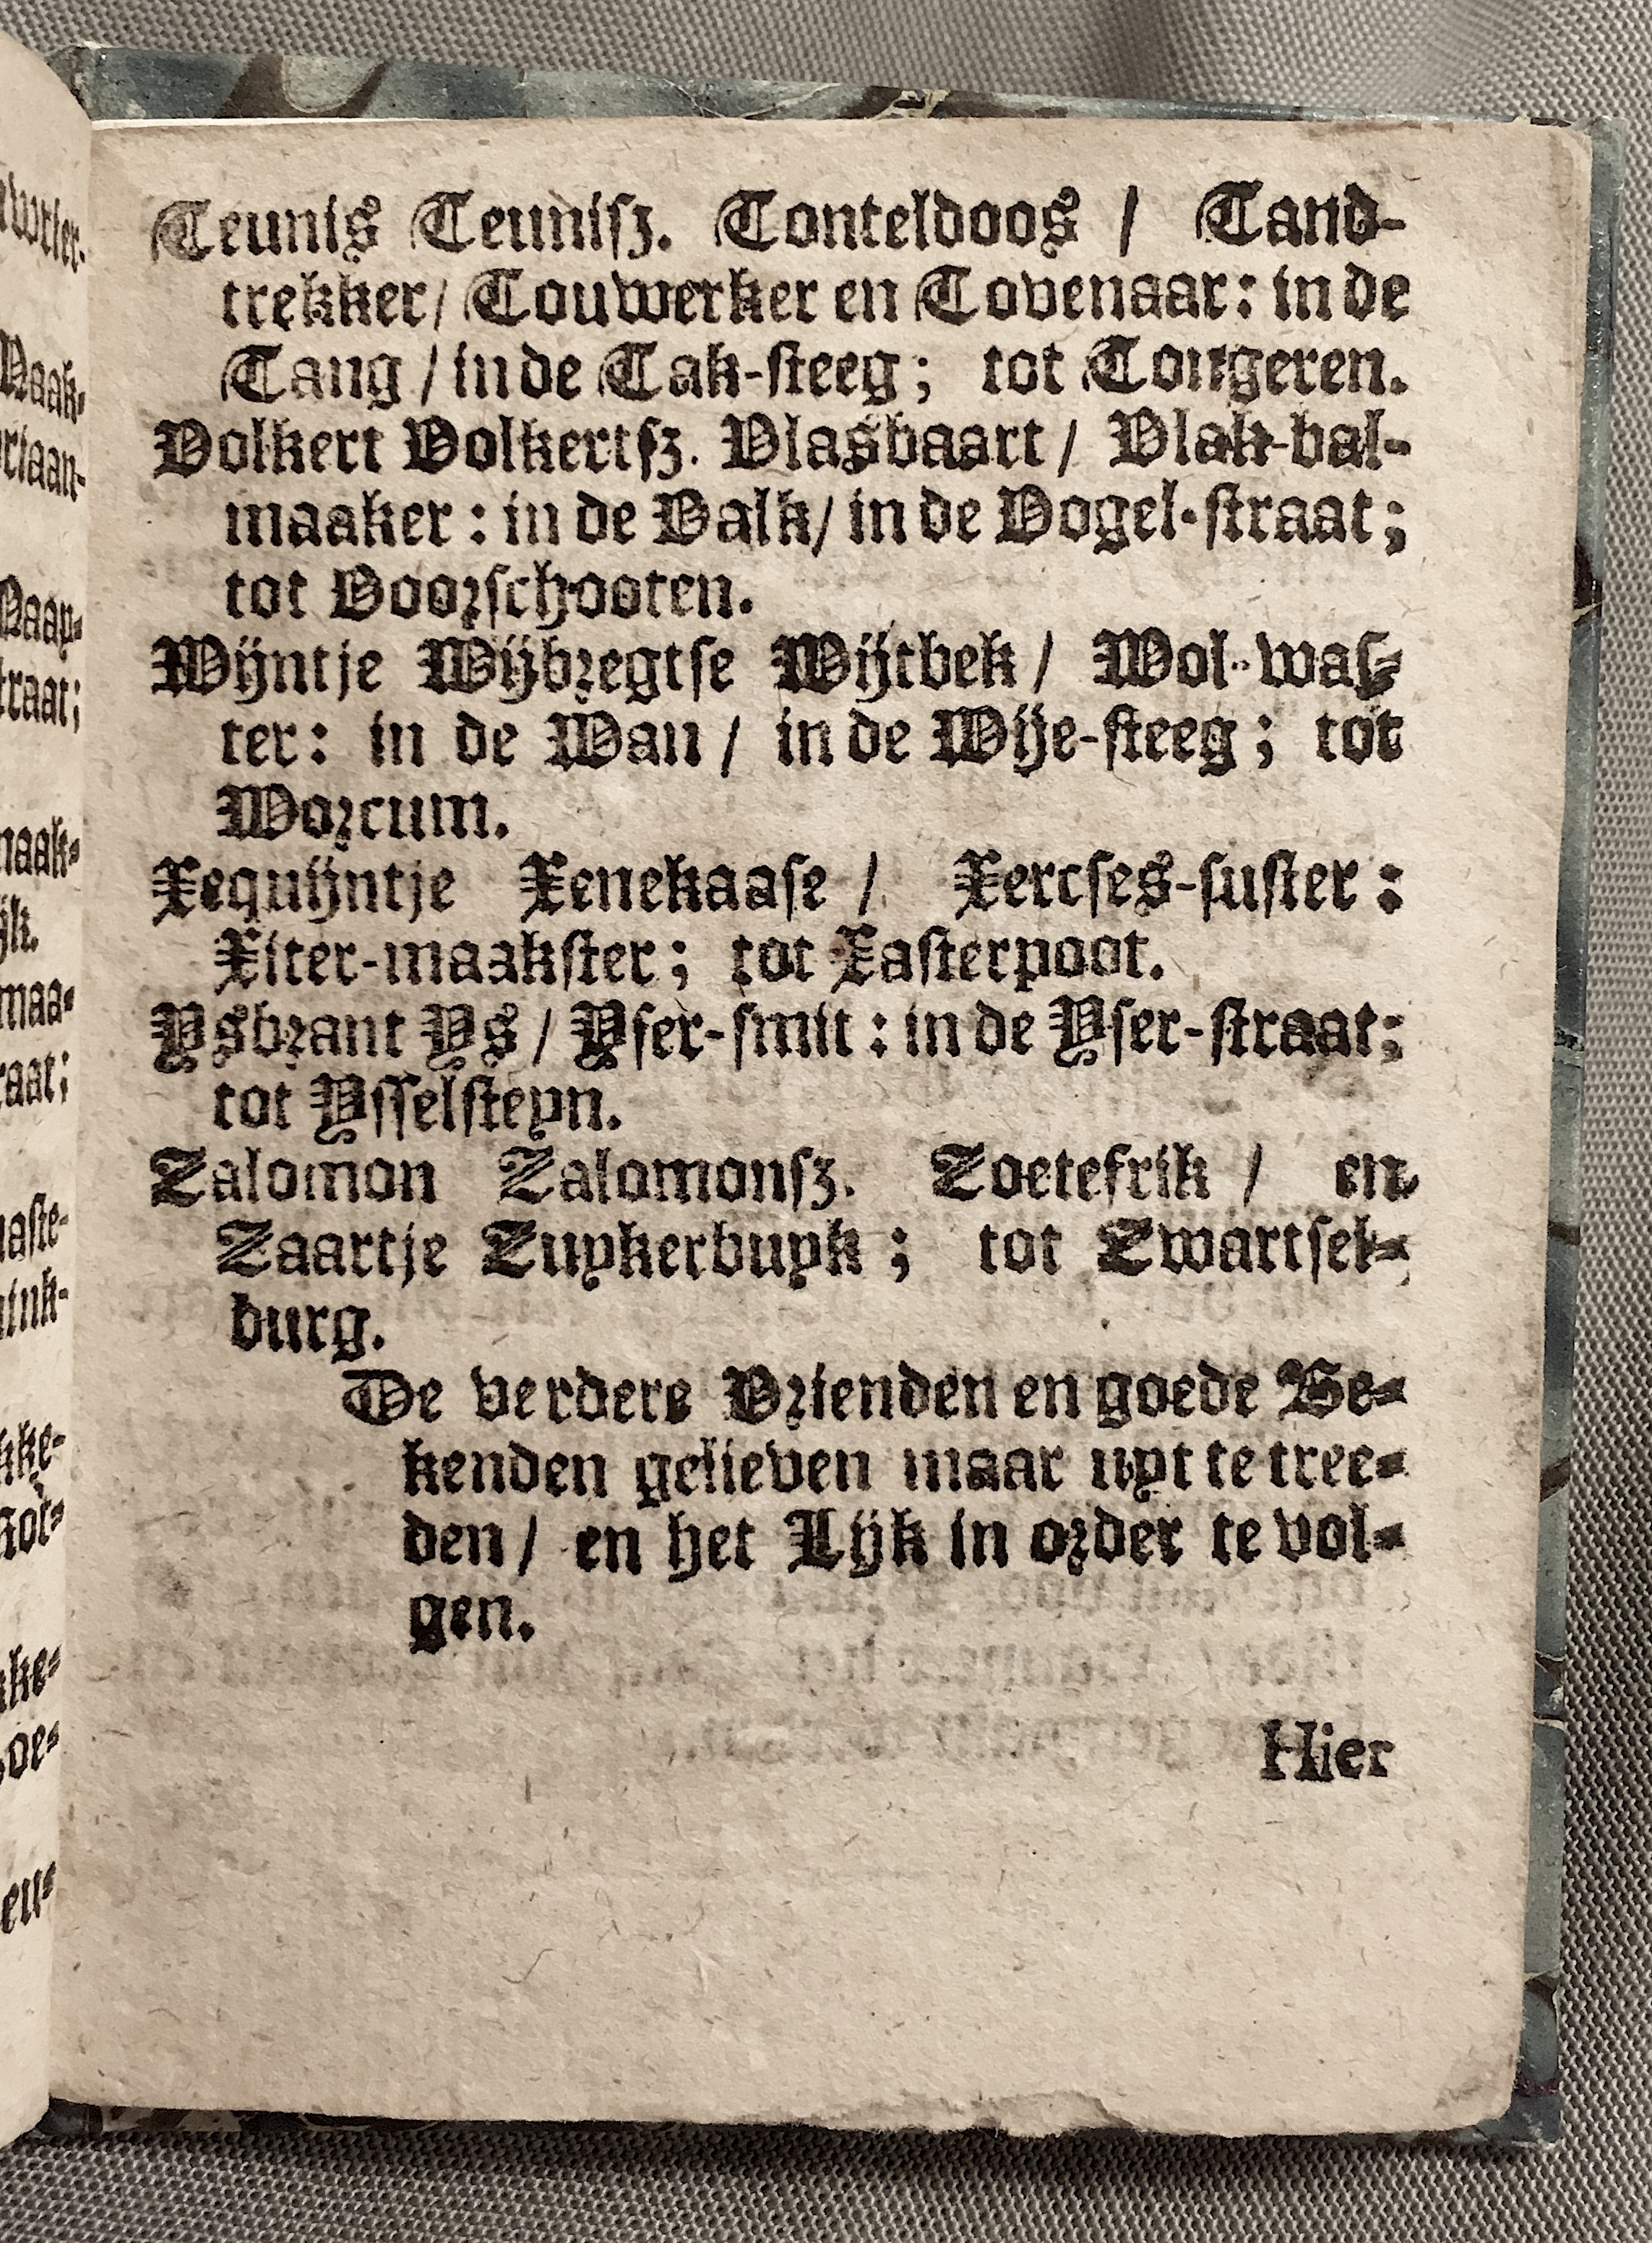 Teunis Teunisz. Tonteldoos / Tand-
trekker/ Touwerker en Tovenaar: in de
Tang / in de Tak-steeg; tot Tongeren.
Volkert Volkertsz. Vlasbaart / Vlak-val-
maaker: in de Valk/ in de Vogel-straat;
tot Voorschooten.
Wijntje Wijbregtse Wijtbek / Wol-was-
ter: in de Wan / in de Wije-steeg; tot
Worcum.
Xequijntje Xenekaase / Xercses-suster:
Xiter-maakster; tot Xasterpoot.
Ysbrant Ys / Yser-smit: in de Yser-straat;
tot Ysselsteyn.
Zalomon Zalomonsz. Zoetefrik / en
Zaartje Zuykerbuyk; tot Zwartsel-
burg.
De verdere Vrienden en goede Be-
kenden gelieven maar uyt te tree-
den / en het Lijk in order te vol-
gen.
Hier